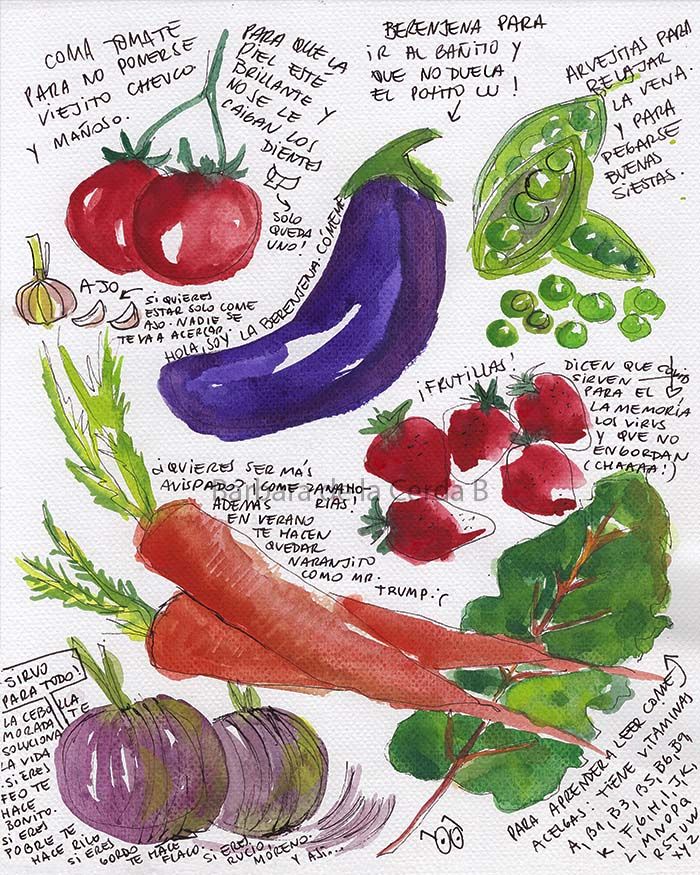 COMA TOMATE
PARA NO PONERSE
VIEJITO CHEUCO
Y MAÑOSO.
PARA QUE LA
PIEL ESTÉ
BRILLANTE Y
NO SE LE
CAIGAN LOS
DIENTES
SOLO
QUEDA
UNO!
BERENJENA PARA
IR AL BAÑITO Y
QUE NO DUELA
EL POTITO UU!
ARVEJITAS PARA
RELAJAR
LA VENA.
Y PARA
PEGARSE
BUENAS
SIESTAS.
AJO
SI QUIERES
ESTAR SOLO COME
AJO. NADIE SE
TE VA A ACERCAR.
HOLA, SOY LA BERENJENA. CÓMEME
¡FRUTILLAS!
DICEN QUE
SIRVEN
PARA EL
LA MEMORIA
LOS VIRUS
Y QUE NO
ENGORDAN
(CHAAAA!)
¿QUIERES SER MÁS
AVISPADO? ¡COME ZANAHO
RIAS!
ADEMÁS
EN VERANO
TE HACEN
QUEDAR
NARANJITO
COMO MR.
TRUMP :(
Bárbara de la Cerda B
SIRVO
PARA TODO!
LA CEBOLLA
MORADA TE
SOLUCIONA
LA VIDA
SI ERES
FEO TE
HACE
BONITO.
SI ERES
POBRE TE
HACE RICO
SI ERES
GORDO TE HACE
FLACO. SI ERES
RUCIO, MORENO.
Y ASÍ...
PARA APRENDER A LEER COME
ACELGAS: TIENE VITAMINAS
A, B1, B3, B5, B6, B9
K, F, G, H, I, J, K,
L, M, N, O, P, Q,
R, S, T, U, V, W
X Y Z